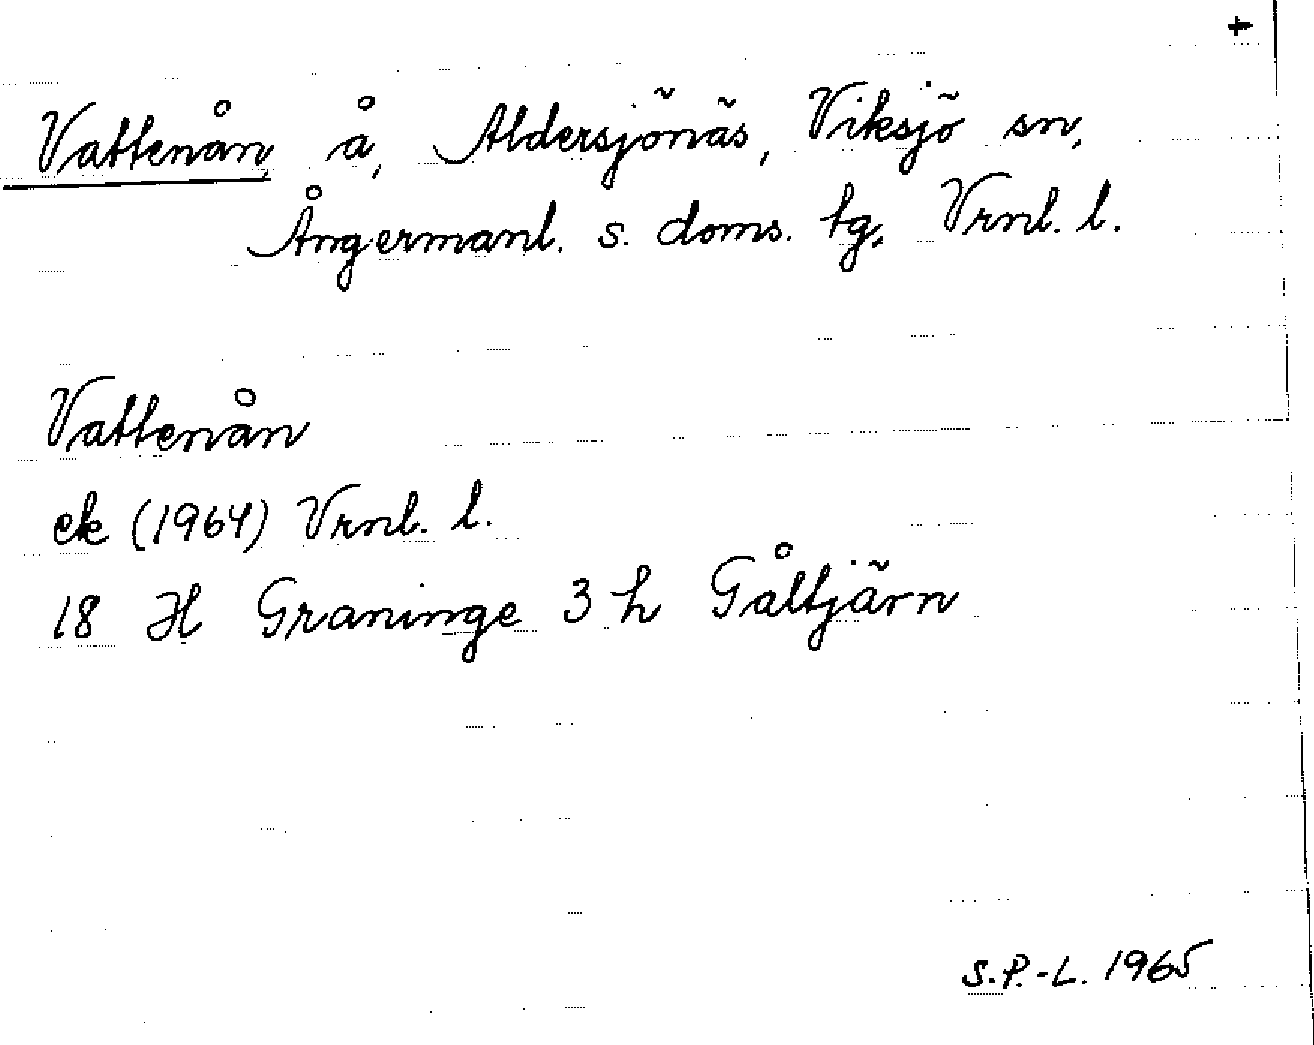 +
Vattenån, å, Aldersjönäs, Viksjö sn,
Ångermanl. s. doms. tg, Vrnl. l.
Vattenån
ek (1964) Vrnl. l.
18 H Graninge 3 h Gåltjärn
S.P.-L. 1965